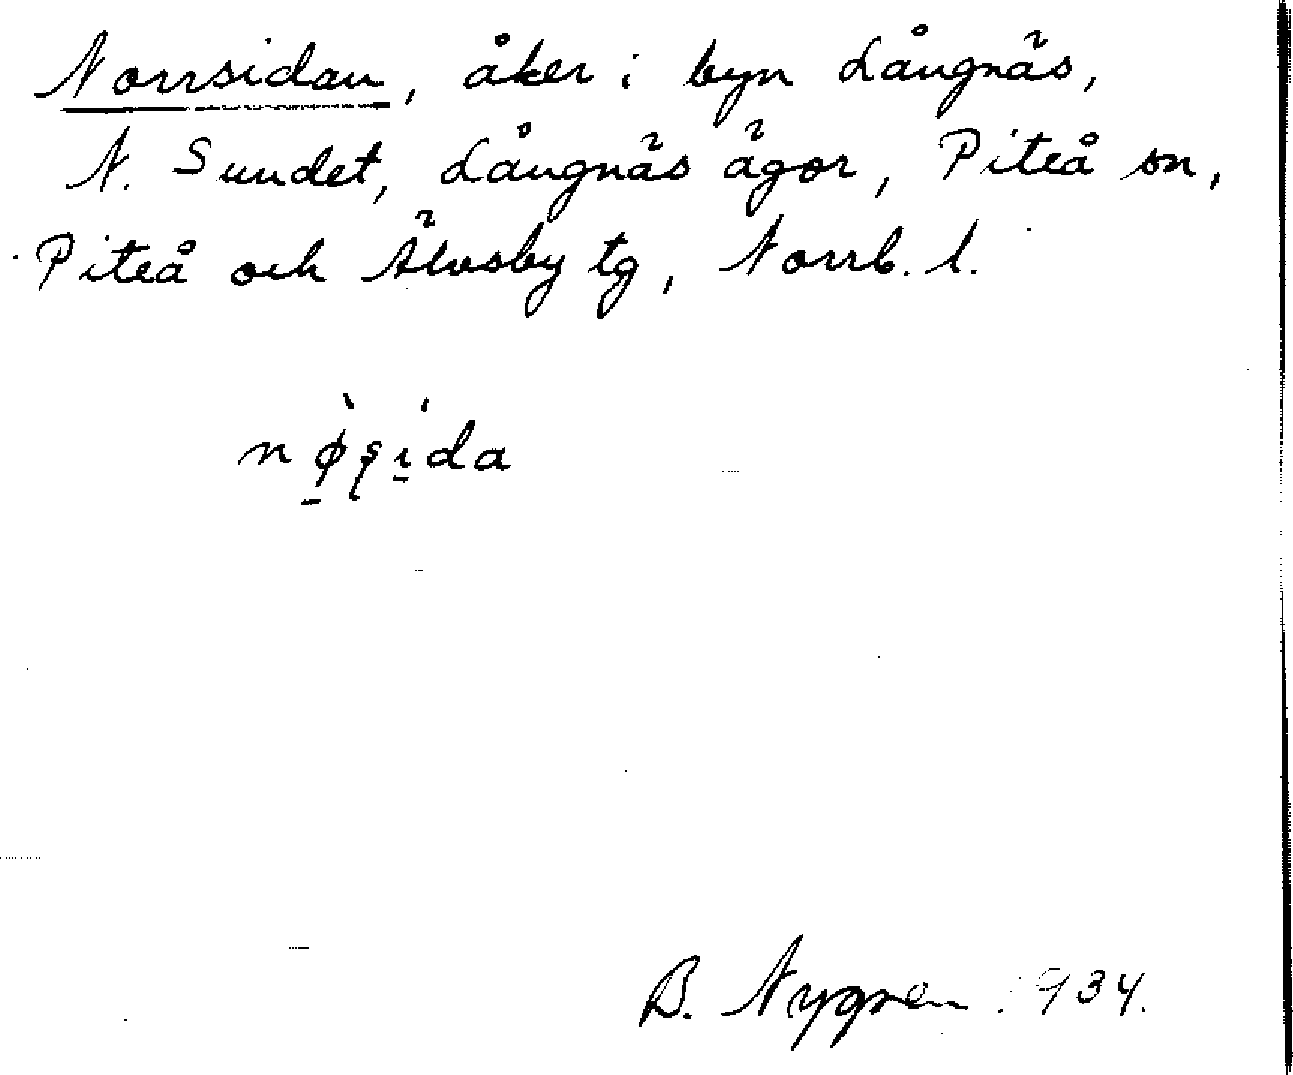 Norrsidan, åker i byn Långnäs,
N. Sundet, Långnäs ägor, Piteå sn,
Piteå och Älvsby tg, Norrb. l.
nø̀ʂída
B. Nygren 1934.